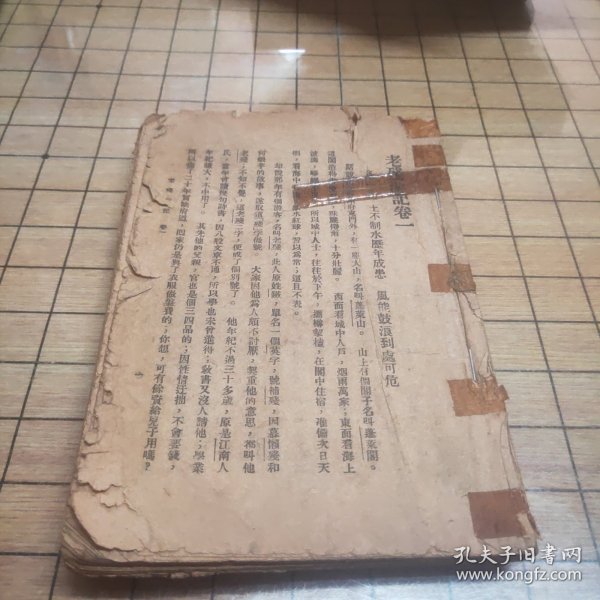 老 記卷一
土不制水歷年成患 風能鼓浪到處可危
門外，有一座大山，名叫蓬萊山。 山上有個閣子名叫蓬萊閣。
十分壯麗。 西面看城中人戶，煙雨萬家；東面看海上
所以城中人士，往往於下午，攜樽挈榼，在閣中住宿，準備次日天
明，看海中出日，習以為常；這且不表。
却說那年有個游客，名叫老殘，此人原姓鐵，單名一個英字，號補殘，因慕懶殘和
何煨芋的故事，遂取這殘字做號。 大家因他為人頗不討厭，契重他的意思，都叫他
老殘；不知不覺，這老殘二字，便成了個別號了。 他年紀不過三十多歲，原是江南人
氏，當年曾讀幾句詩書，因八股文章不通，所以學也未曾進得；教書又沒人請他；學業
年紀歲大，不中用了。 其先他的父親，官也是個三四品的；因性情迂拙，不會要錢，
所以做了二十年實缺，回家仍是典了衣服做盤費的；你想，可有餘資給兒子用嗎？
孔夫子旧书网
www.kongfz.com